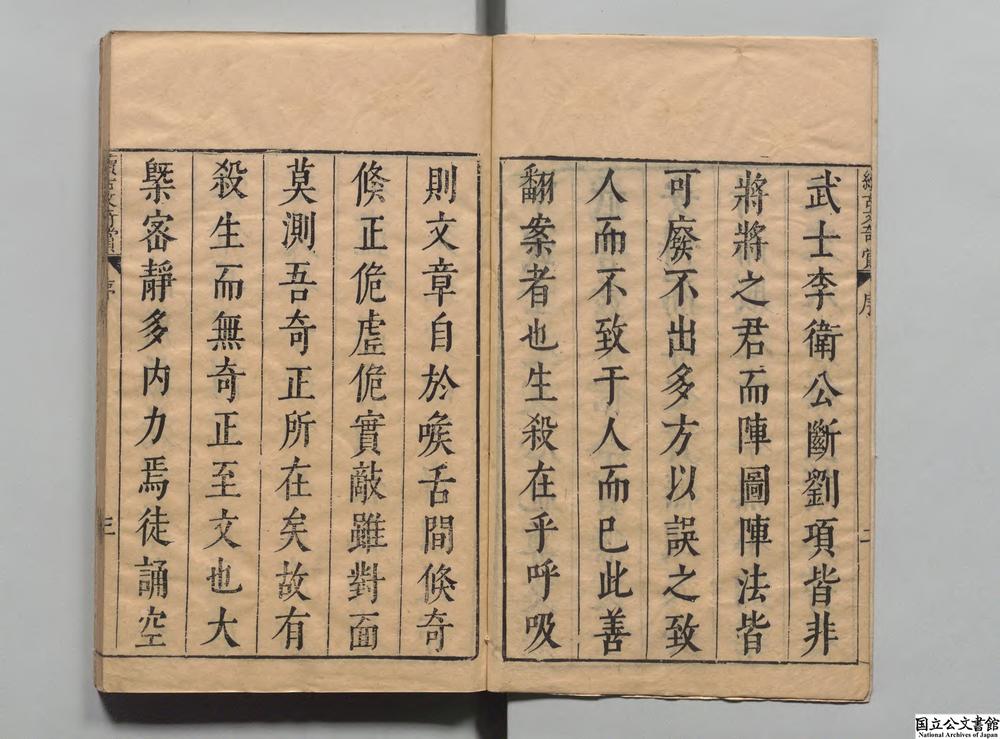 武士李衛公斷劉項皆非
將將之君而陣圖陣法皆
可廢不出多方以誤之致
人而不致于人而已此善
翻案者也生殺在乎呼吸
則文章自於喉舌間倏奇
倏正佹虛佹實敵雖對面
莫測吾奇正所在矣故有
殺生而無奇正至文也大
槩密靜多內力焉徒誦空
序
二
序
三
国立公文書館
National Archives of Japan